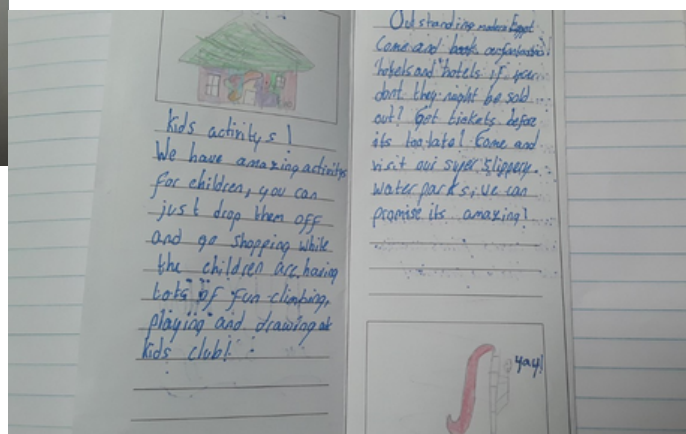 Kids activitys!
We have amazing activitys
for children, you can
just drop them off
and go shopping while
the children are having
lots of fun climbing,
playing and drawing at
kids club!
Outstanding modern Egypt
Come and book our fantastic
hotels and hotels if you
dont they might be sold
out! Get tickets before
its too late! Come and
visit our super slippery
water parks, we can
promise its amazing!
yay!